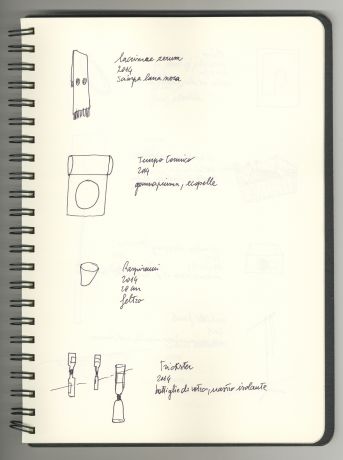 Lacrimae rerum
2014
Sciarpa lana rossa
Tempo Comico
2014
gommapiuma, ecopelle
Respirami
2014
28 cm
feltro
Trickster
2014
bottiglie di vetro, nastro isolante